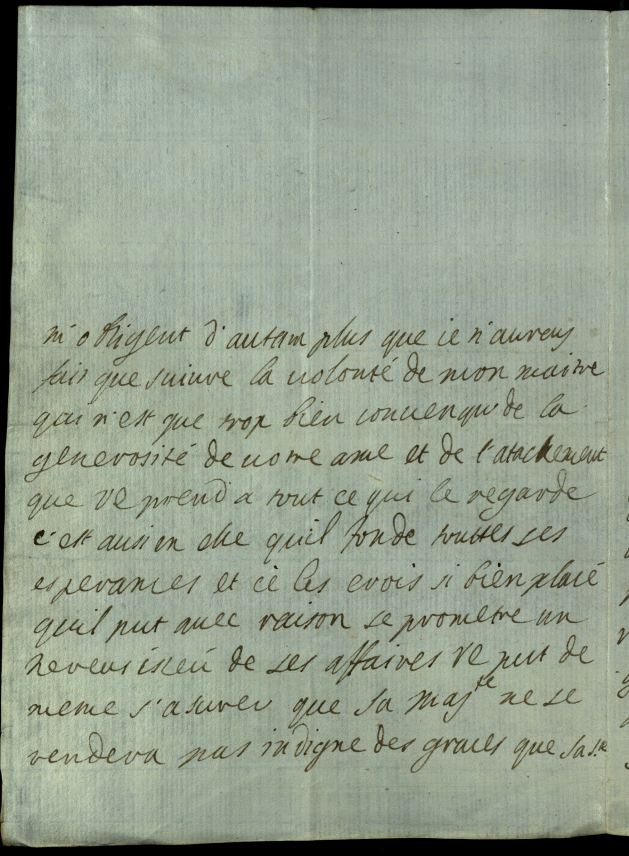 m'obligent d'autam plus que ie n'aureus
fait que suiure la uolonté de mon maitre
qui n'est que trop bien conuenqu de la
generosité de uotre ame et de l'atachement
que VE prend a tout ce qui le regarde
c'est ausi en elle qu'il fonde touttes ses
esperances et ie les crois si bien placé
qu'il put auec raison se prometre un
hereus iseu de ses affaires VE put de
meme s'asurer que sa maj.te ne se
rendera pas indigne des graces que sa s.te